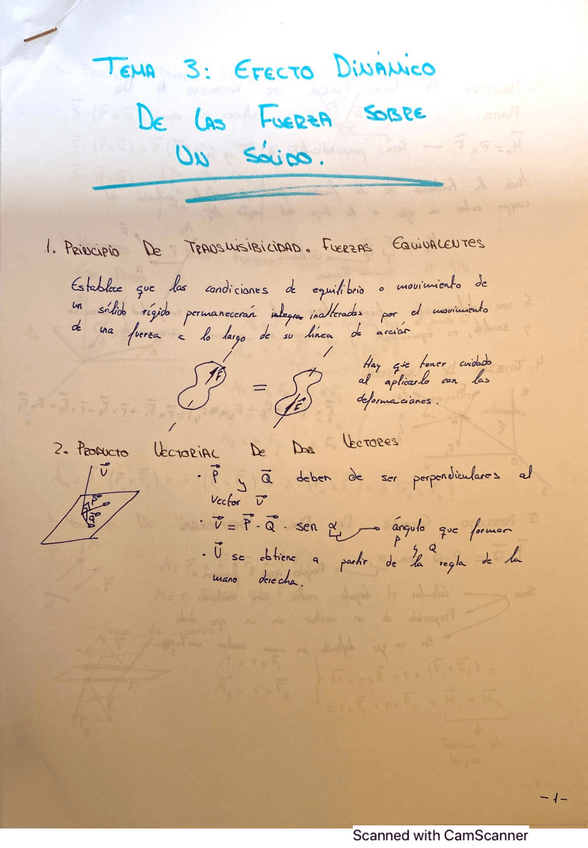 TEMA 3: EFECTO DINÁMICO
DE LAS FUERZA SOBRE
UN SÓLIDO.
1. PRINCIPIO DE TRANSMISIBILIDAD. FUERZAS EQUIVALENTES
Establece que las condiciones de equilibrio o movimiento de
un sólido rígido permanecerán inalterados por el movimiento
de una fuerza a lo largo de su línea de acción
F = F
Hay que tener cuidado
al aplicarlo con las
deformaciones.
2. PRODUCTO VECTORIAL DE DOS VECTORES
V⃗
P
Q
· P⃗ y Q⃗ deben de ser perpendiculares al
vector V⃗
· V⃗ = P⃗ · Q⃗ · sen α → ángulo que forman
P y Q
· V⃗ se obtiene a partir de la regla de la
mano derecha.
-1-
Scanned with CamScanner